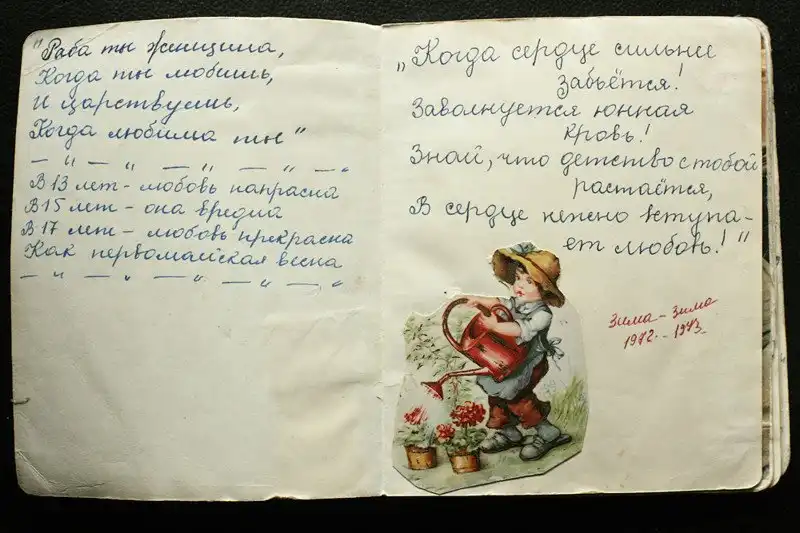 "Раба ты женщина,
Когда ты любишь,
И царствуешь,
Когда любима ты"
— " — " — " — " — "
В 13 лет - любовь напрасна
В 15 лет - она вредна
В 17 лет - любовь прекрасна
Как первомайская весна
— " — " — " — " — "
„Когда сердце сильнее
забьётся!
Заволнуется юнная
кровь!
Знай, что детство с тобой
растаётся,
В сердце нежно вступа-
ет любовь!"
Зима - зима
1972. - 1973.